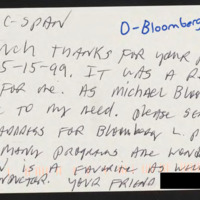 C-SPAN
D-Bloomberg
MUCH THANKS FOR YOUR P
5-15-99. IT WAS A R
FOR ME. AS MICHAEL BLOO
E TO MY NEED. PLEASE SE
ADDRESS FOR BLOOMBERG L.P
MANY PROGRAMS ARE WOND
N IS A FAVORITE AS WELL
NDUCTOR. YOUR FRIEND